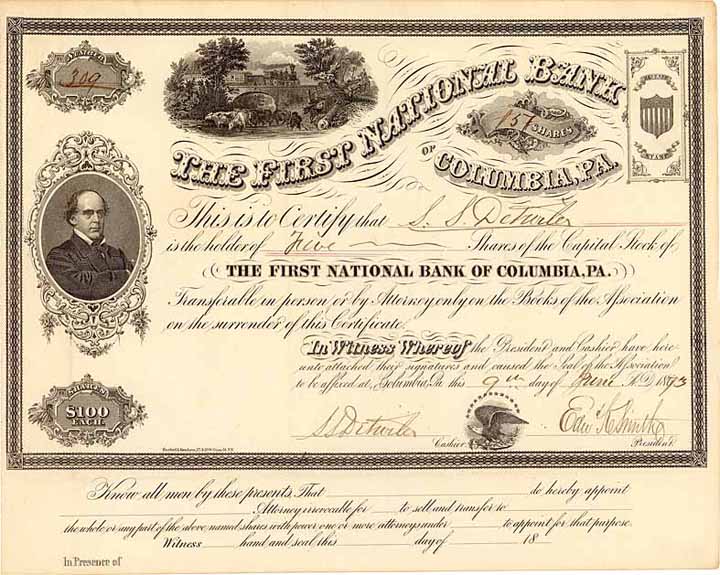 NUMBER
309
THE FIRST NATIONAL BANK
OF
COLUMBIA, PA.
SHARES
STAMP
This is to Certify that S. S. Detwiler
is the holder of five Shares of the Capital Stock of
THE FIRST NATIONAL BANK OF COLUMBIA, PA.
Transferable in person or by Attorney only on the Books of the Association
on the surrender of this Certificate.
In Witness Whereof the President and Cashier have here
unto attached their signatures and caused the Seal of the Association
to be affixed at Columbia, Pa this 9th day of June A.D. 1893
SHARES
$100
EACH.
S S Detwiler
Cashier
Edw K Smith
President
Know all men by these presents, That do hereby appoint
Attorney irrevocable for to sell and transfer to
the whole, or any part of the above named shares with power one or more attorneys under to appoint for that purpose.
Witness hand and seal this day of 18
In Presence of